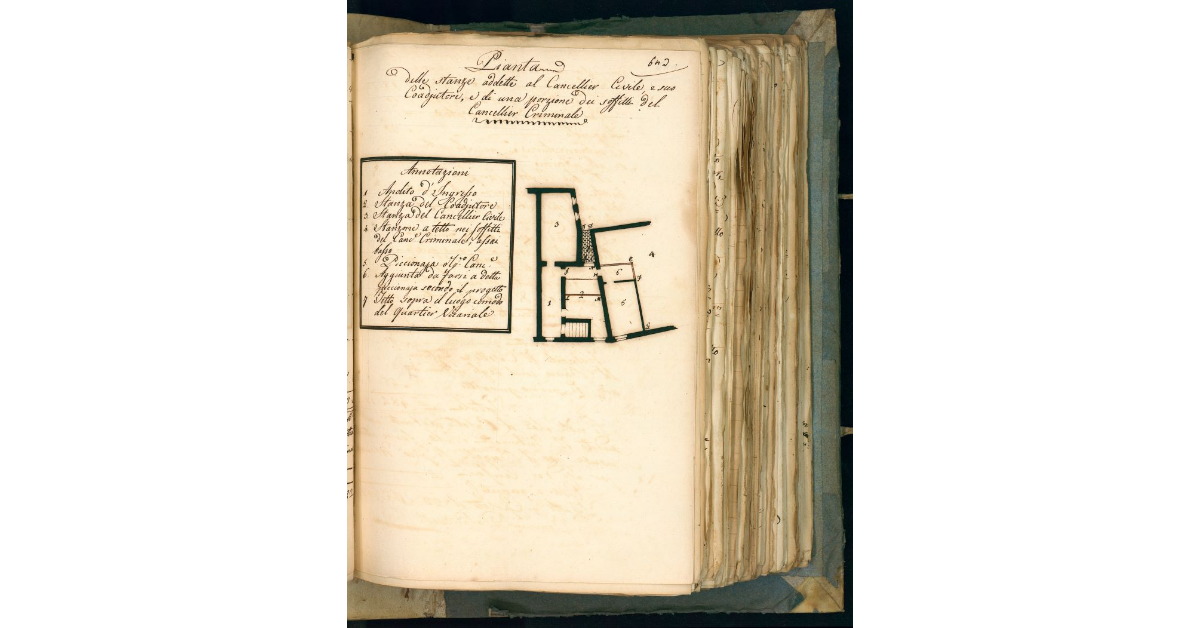 Pianta
642.
delle stanze addette al Cancellier Civile, e suo
Coadjutori, e di una porzione dei soffitte del
Cancellier Criminale
Annotazioni
1 Andito d'Ingresso
2 Stanza del Coadjutore
3 Stanza del Cancellier Civile
4 Stanzone a tetto nei soffitte
del Canc.e Criminale, assai
basso
5 Piccionaja del Canc.e
6 Aggiunta da farsi a detta
piccionaja secondo il progetto
7 Tetto sopra il luogo comodo
del Quartier Vicariale
3
4
6
5
1
2